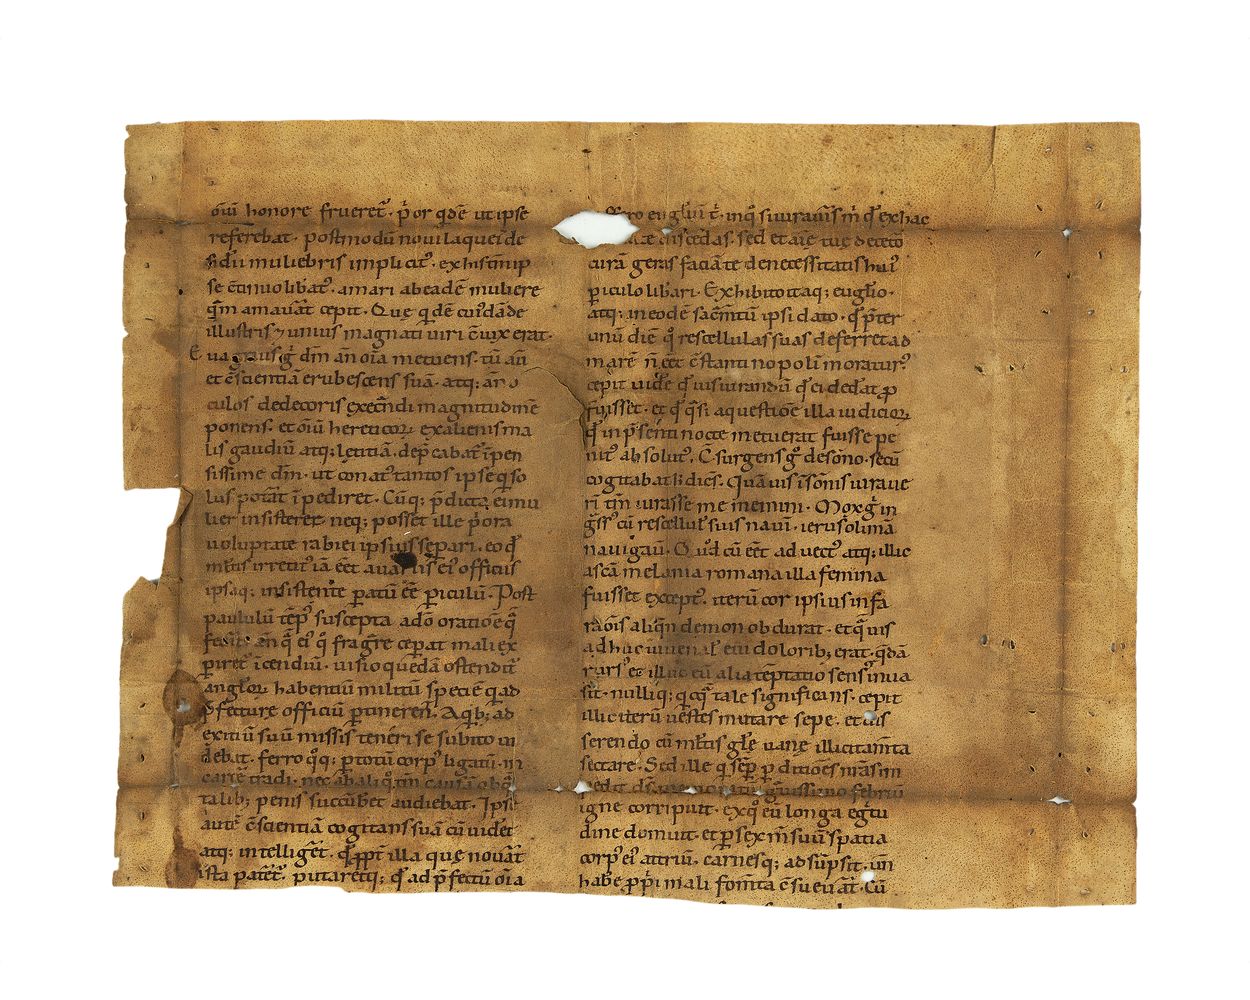 om̄iū honore frueret᷒. p̄or qͥdē ut ipse
referebat. postmodū novi laquei de
siđii muliebris implicit᷒. ex histim̄ ip
se c̄tinuo libat᷒. amari ab eadē muliere
qͣm amauāt cepit. Que qͥdē cuiᵈdā de
illustris ⁊ unius magnati viri c̄iux erat.
Euagͥus gͥ dm̄ an̄ oīa metuens. tū aū
et c̄scientiā erubescens suā. atq; an̄ o
culos dedecoris execn̄di magnitudinē
ponens. et om̄iū hereticoꝝ ex alienis ma
lis gaudiū atq; lętitiā. dep̄cabat᷒ īpen
sissime dm̄. ut conat᷒ tantos ipse qͥ so
lus potāt īpediret. Cūq; p̄dicta ei mu
lier insisteret neq; posset ille p̄ ora
voluptate rabiei ipsius separi. eo qͩ
m̄tis irretit᷒ iā eēt
ipsaq; insistente ꝑatū eē ꝑiculū. Post
paululū tēp᷒ suscepta ad dō oratiōe qͣ
an̄ qͣ ei᷒ qͦ fragͥre ceperat mali ex
piret᷒ īcendiū. visio quedā ostendit᷒
angl̄oꝝ habentiū militū speciē qͥ ad
p̄fecture officiū ꝑtineren̄. A qͥb; ad
exitiū suū missis teneri se subito ui
debat. ferro qͦq; ꝑ totū corp᷒ ligatū. in
carcē tradi. nec
talib; penis succūbet audiebat. Ipse
autē c̄scientiā cogitans suā cū videt
atq; intelligēt. qͩ ppt̄ illa que nouāt
ista patet᷒. putaretq; qͩ ad p̄fectū oīa
eugl̄iū. inqͥ si iuraūis m̄ qͩ ex hac
discedas. sed et aīe tue decetō
curā geras faciā te de necessitatis hui᷒
ꝑiculo libari. Exhibito itaq; euglio.
atq; in eodē sacm̄tū ipsi dato. qͩ p̄ter
unū diē qͦ res cellulas suas deferret ad
marē n̄ eēt c̄stantinopoli moratur᷒
cepit vide qͩ ius iurandū qͩ ei dedat ꝑ
fuisset. et qͩ qͣsi a questiōe illa iudicioꝝ
qͣ in p̄senti nocte metuerat fuisse pe
nit᷒ absolut᷒. C̄surgens gͦ de sōno. secū
cogitabat ħ dicēs. Quāuis ī sōmis iuraue
rī tm̄ iurasse me memini. Mox gͥ in
gͥss᷒ cū res cellul᷒ suis navi. ierusolimā
navigaū. Quod cū eēt advect᷒ atq; illic
a scā melonia romana illa femina
fuisset except᷒. iterū cor ipsius in fa
raōis aliqͥn demon obdurat. et qͣuis
adhuc
rurs᷒ et illuc eū alia tēptatio sens᷒ inua
sit. nulliq; qͥcqͣ tale significans. cepit
illic iterū vestes mutare sepe. et uis
serendo cū m̄tis gl̄e vane illicitām̄ta
sectare. Sed ille qͥ sēp ꝑditiōēs nr̄as im
gͣuissimo febriū
igne corripuit. ex qͦ eū longa egͥtu
dine domuit. et ꝑ sex m̄suū spatia
corp᷒ ei᷒ attriū. carnesq; adsūpsit. un̄
habe ꝑpͥi mali fom̄ta c̄sueuāt. Cū